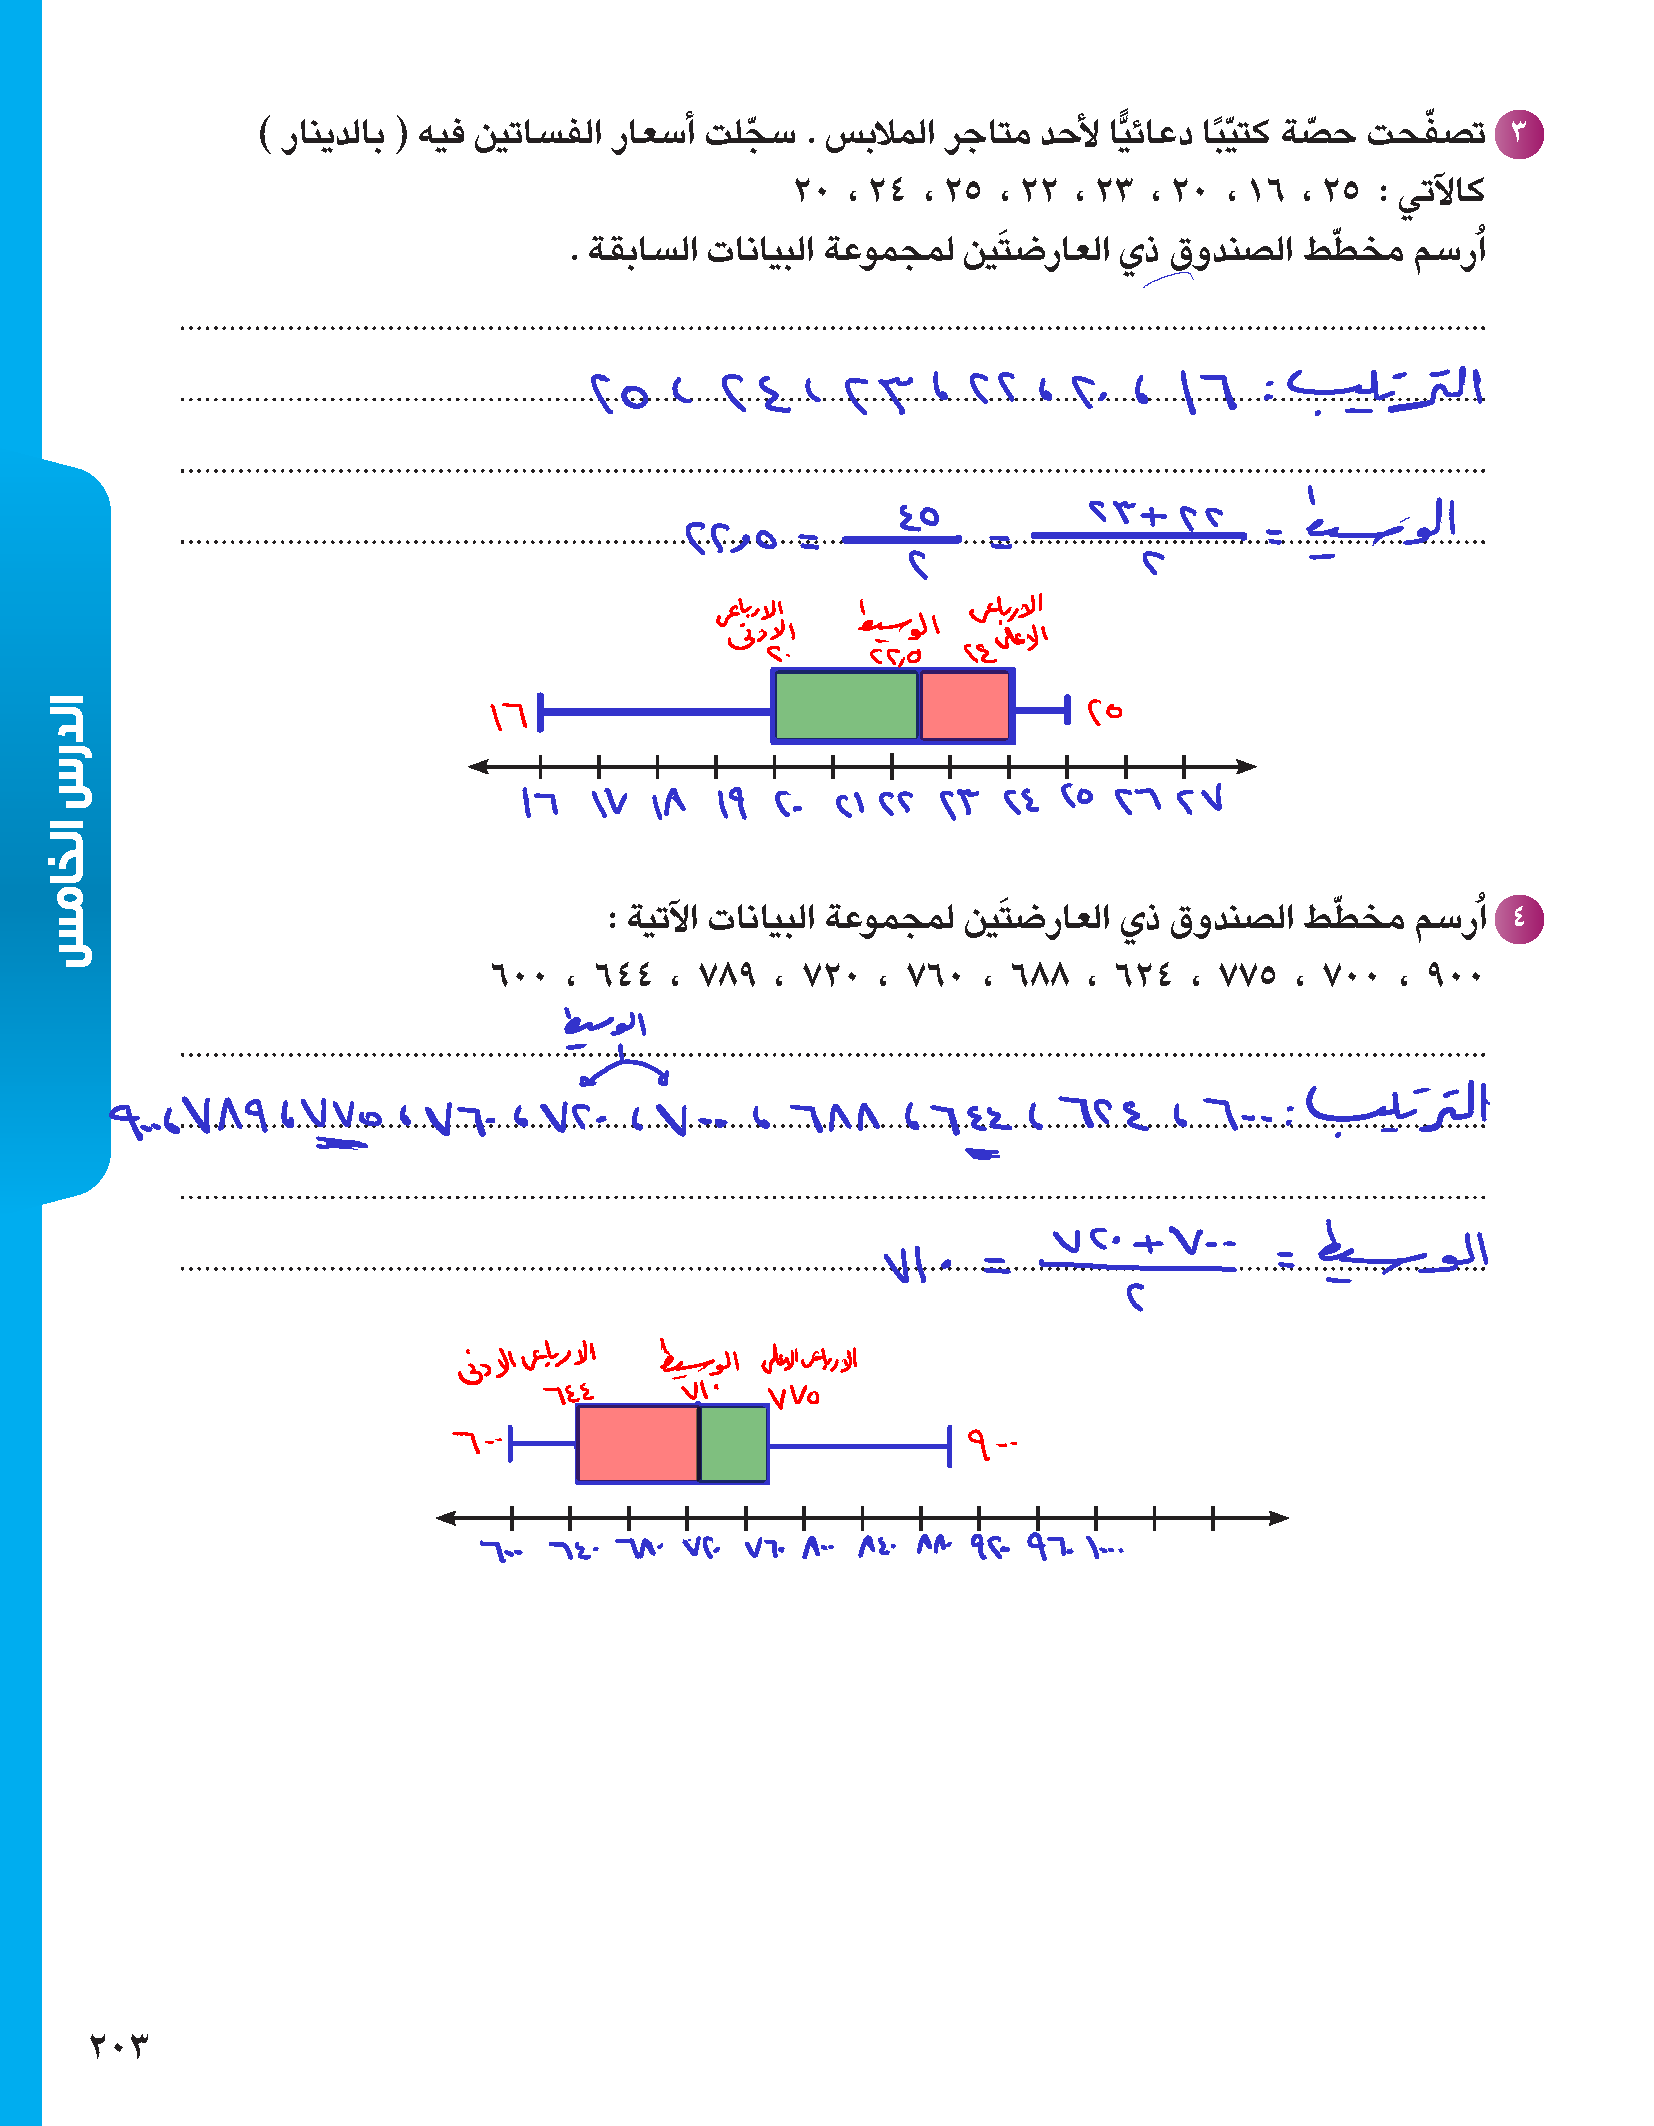 ٣ تصفّحت حصّة كتيّبًا دعائيًّا لأحد متاجر الملابس . سجّلت أسعار الفساتين فيه ( بالدينار )
كالآتي : ٢٥ ، ١٦ ، ٢٠ ، ٢٣ ، ٢٢ ، ٢٥ ، ٢٤ ، ٢٠
اُرسم مخطّط الصندوق ذي العارضتَين لمجموعة البيانات السابقة .
الترتيب : ١٦ ، ٢٠ ، ٢٢ ، ٢٣ ، ٢٤ ، ٢٥
الوسيط = ٢٢ + ٢٣ / ٢ = ٤٥ / ٢ = ٢٢,٥
الارباعي الاعلى ٢٤
الوسيط ٢٢,٥
الارباعي الادنى ٢٠
١٦ ٢٥
١٦ ١٧ ١٨ ١٩ ٢٠ ٢١ ٢٢ ٢٣ ٢٤ ٢٥ ٢٦ ٢٧
٤ اُرسم مخطّط الصندوق ذي العارضتَين لمجموعة البيانات الآتية :
٩٠٠ ، ٧٠٠ ، ٧٧٥ ، ٦٢٤ ، ٦٨٨ ، ٧٦٠ ، ٧٢٠ ، ٧٨٩ ، ٦٤٤ ، ٦٠٠
الوسيط
الترتيب : ٦٠٠ ، ٦٢٤ ، ٦٤٤ ، ٦٨٨ ، ٧٠٠ ، ٧٢٠ ، ٧٦٠ ، ٧٧٥ ، ٧٨٩ ، ٩٠٠
الوسيط = ٧٠٠ + ٧٢٠ / ٢ = ٧١٠
الارباعي الادنى ٦٤٤
الوسيط ٧١٠
الارباعي الاعلى ٧٧٥
٦٠٠ ٩٠٠
٦٠٠ ٦٤٠ ٦٨٠ ٧٢٠ ٧٦٠ ٨٠٠ ٨٤٠ ٨٨٠ ٩٢٠ ٩٦٠ ١٠٠٠
الدرس الخامس
٢٠٣